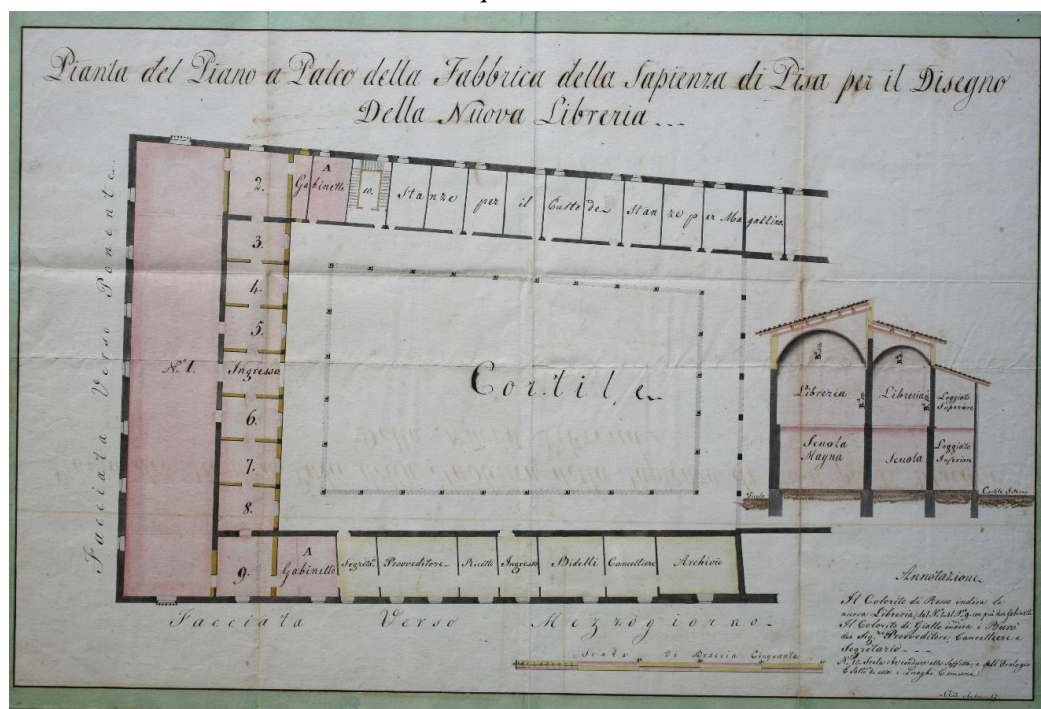 Pianta del Piano a Palco della Fabbrica della Sapienza di Pisa per il Disegno
Della Nuova Libreria
Facciata Verso Ponente
2.
A
Gabinetto
10.
Stanze per il Custode
Stanze per Magazzino
3.
4.
5.
N.º 1.
Ingresso
Cortile
6.
7.
8.
9.
A
Gabinetto
Segret.
Provveditore
Ingresso
Bidelli
Cancelliere
Archivio
Facciata Verso Mezzogiorno
Libreria
Libreria
Loggiato
Superiore
Scuola
Magna
Scuola
Loggiato
Cortile
Annotazione
Il Colorito di Rosso indica la
nuova Libreria
Il Colorito di Giallo indica i
dei Sig.ri Provveditore, Cancelliere e
Segretario
N.º 10. Scala che conduce alle Soffitte, e all'Orologio
e sotto di essa i Luoghi Comuni.
Scala Di Braccia Cinquanta